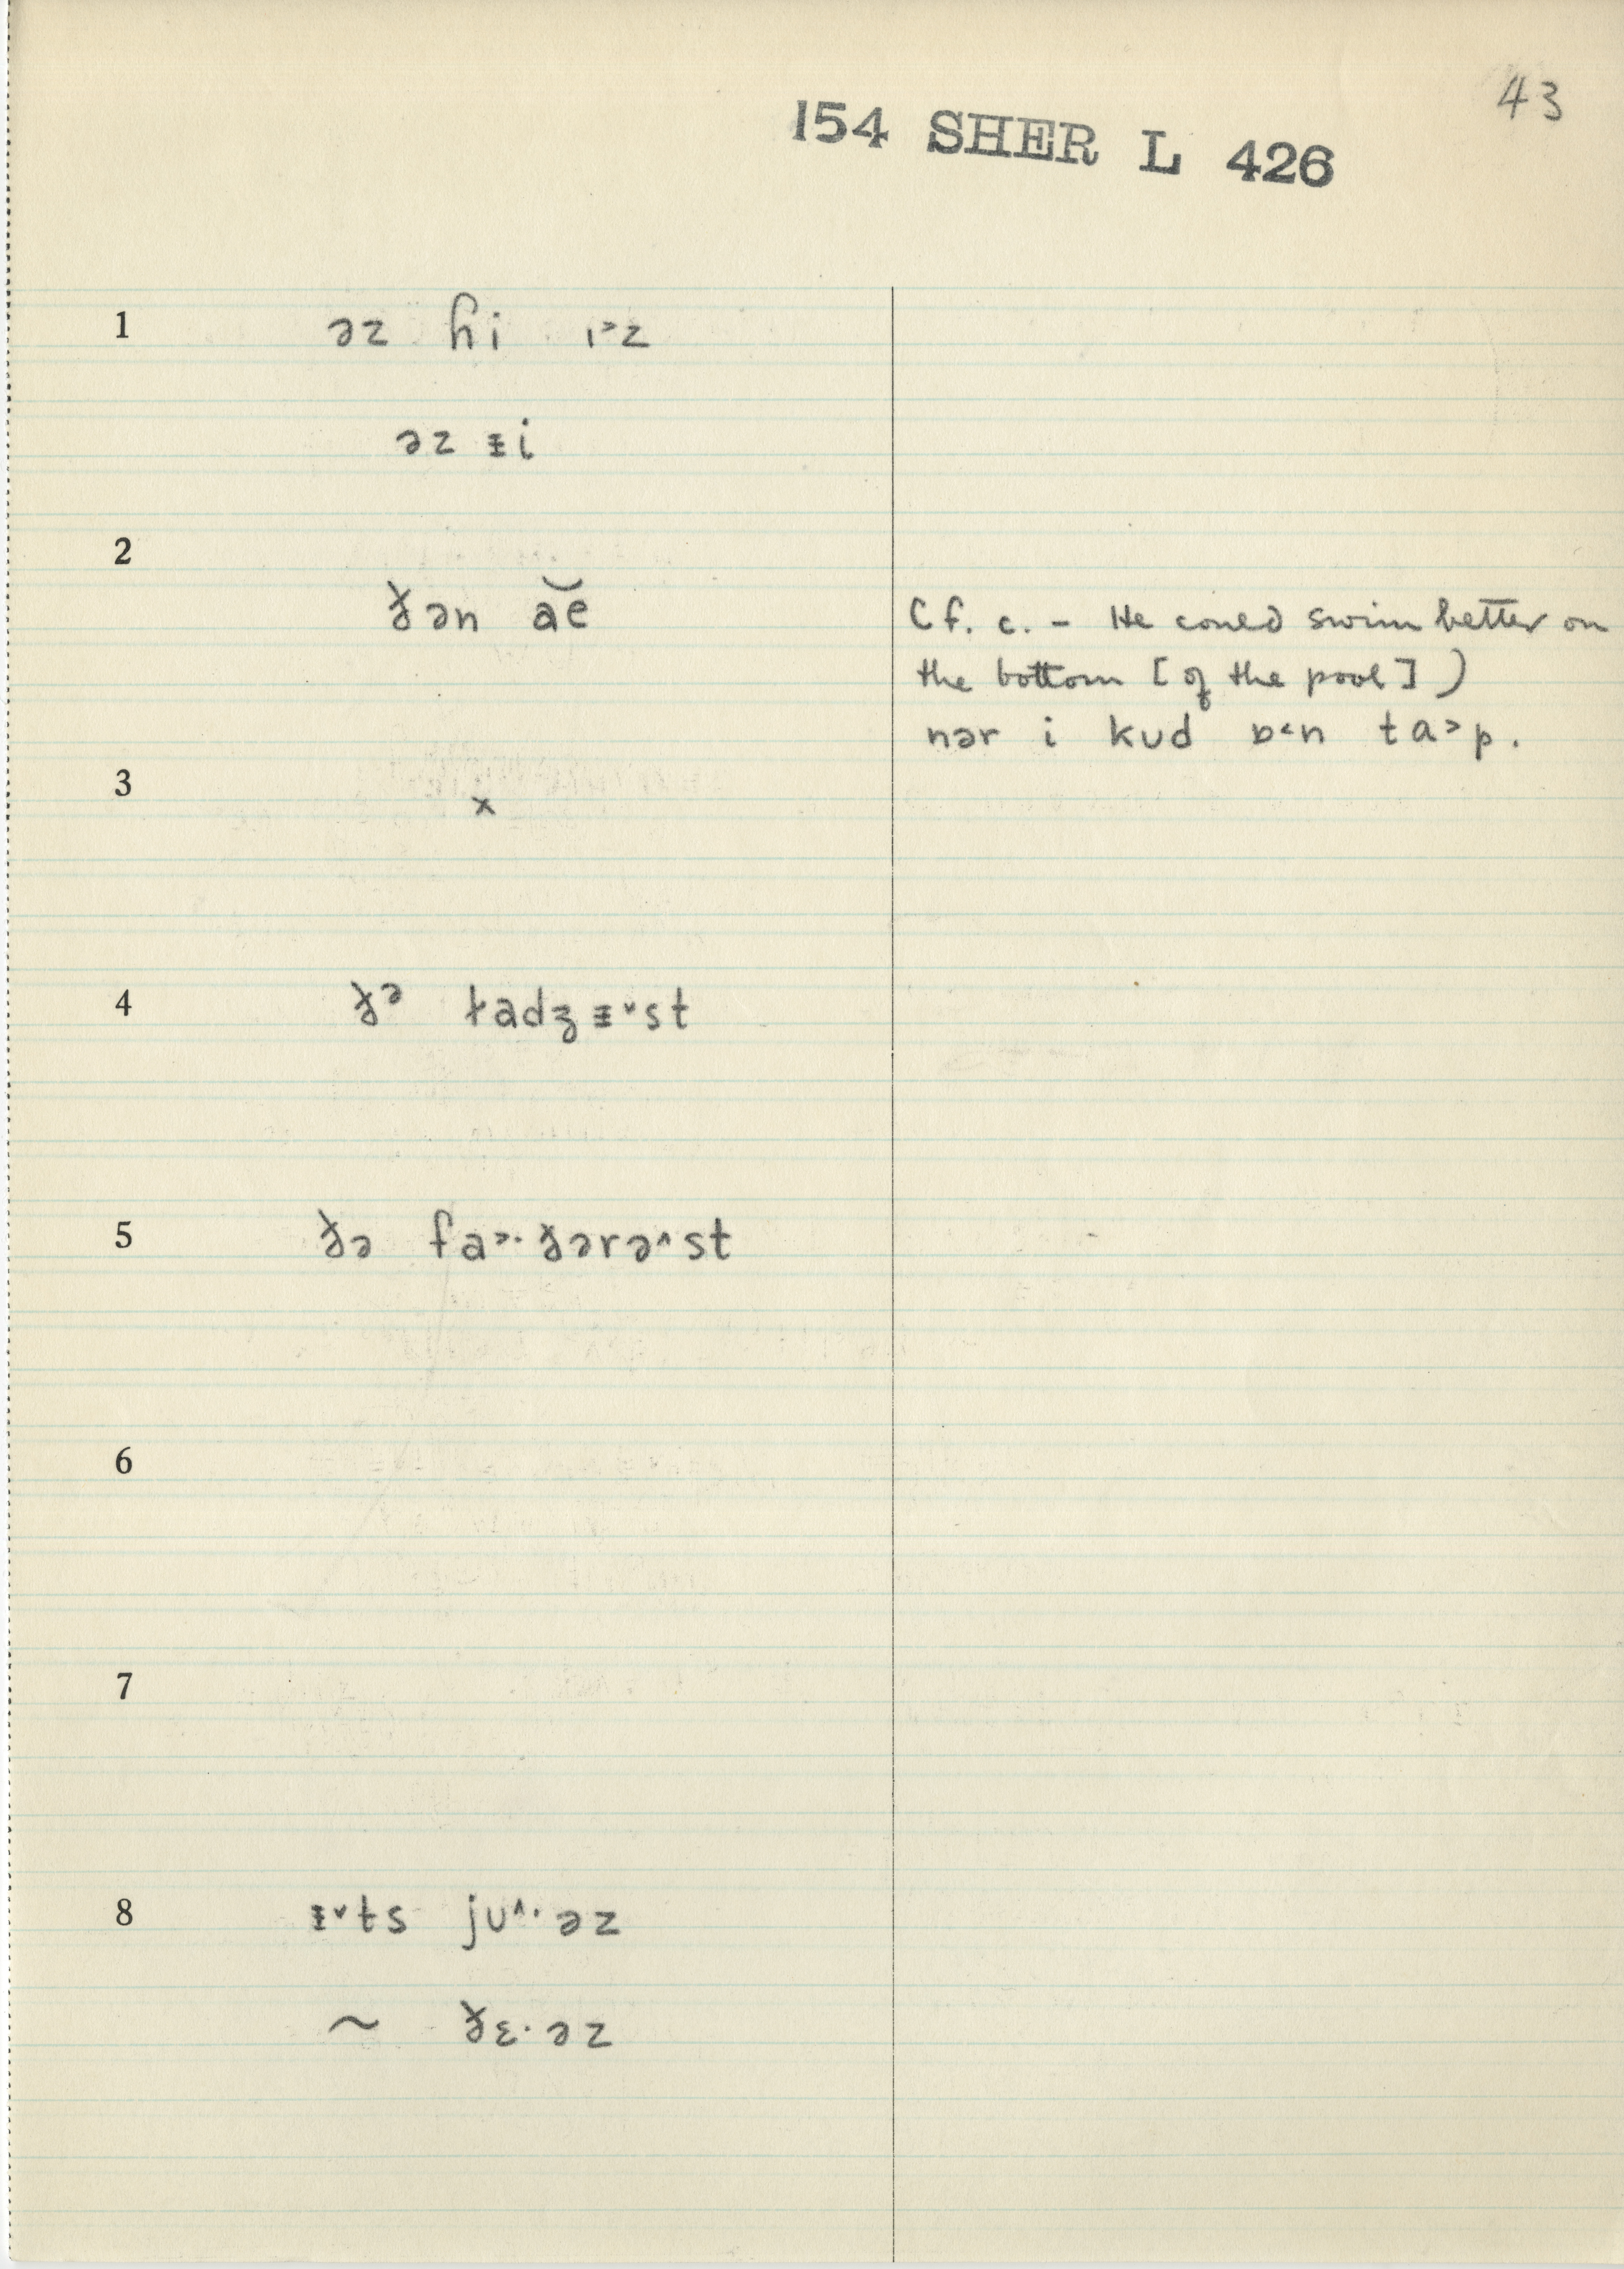 43
154 SHER L 426
1 əz ɦi ɪ˃z
əz ᵻi
2
ɣ̵ən ae͝
(cf. c. - He could swim better on
the bottom [of the pool])
nər i kud ɒ˂n ta˃p.
3 x
4 ðə ladʒᵻ˅st
5 ðə fa˃·ðərə˄st
6
7
8 ᵻ˅ts ju˄·əz
~ ðɛ·əz